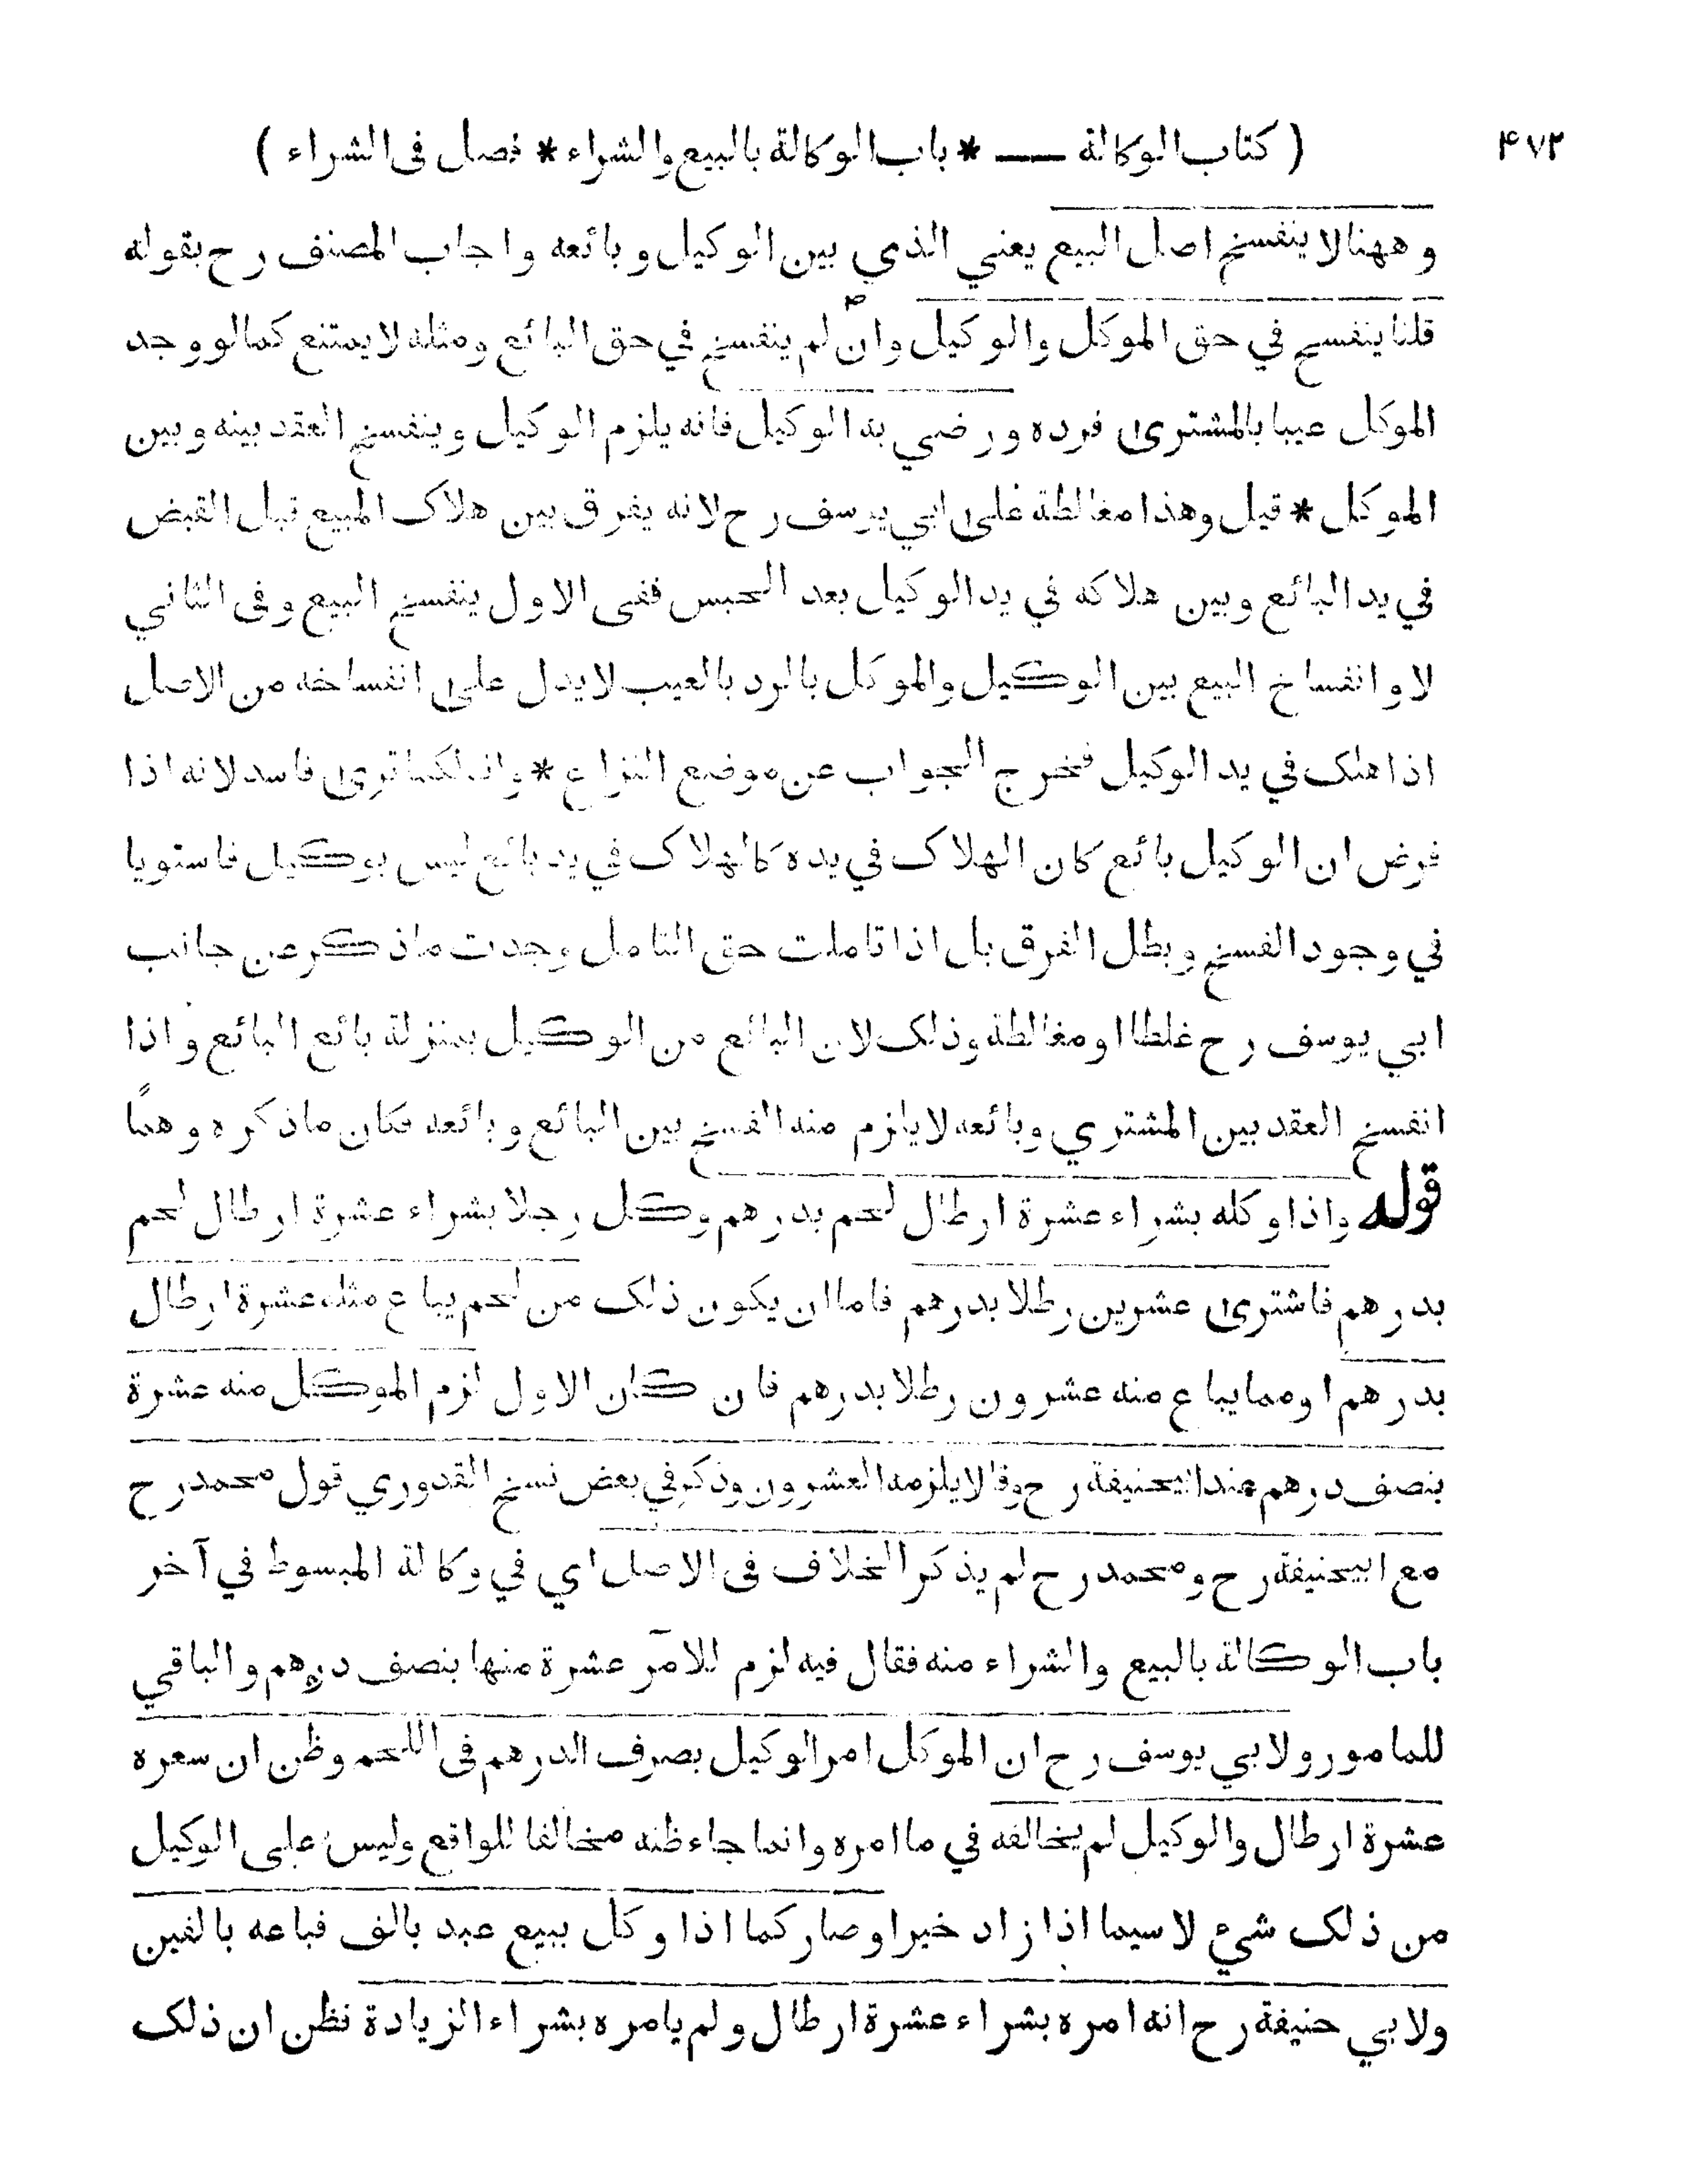 ۴۷۲
( كتاب الوكالة ــــ * باب الوكالة بالبيع والشراء * فصل فى الشراء )
وههنا لا ينفسخ اصل البيع يعني الذي بين الوكيل وبائعه واجاب المصنف رح بقوله
قلنا ينفسخ في حق الموكل والوكيل وان لم ينفسخ في حق البائع ومثله لا يمتنع كما لو وجد
الموكل عيبا بالمشترى فرده ورضي به الوكيل فانه يلزم الوكيل وينفسخ العقد بينه وبين
الموكل * قيل وهذا مغالطة على ابي يوسف رح لانه يفرق بين هلاك المبيع قبل القبض
في يد البائع وبين هلاكه في يد الوكيل بعد الحبس ففى الاول ينفسخ البيع وفى الثاني
لا وانفساخ البيع بين الوكيل والموكل بالرد بالعيب لا يدل على انفساخه من الاصل
اذا هلك في يد الوكيل فخرج الجواب عن موضع النزاع * وانه لكما ترى فاسد لانه اذا
فرض ان الوكيل بائع كان الهلاك في يده كالهلاك في يد بائع ليس بوكيل فاستويا
في وجود الفسخ وبطل الفرق بل اذا تاملت حق التامل وجدت ما ذكر عن جانب
ابي يوسف رح غلطا او مغالطة وذلك لان البائع من الوكيل بمنزلة بائع البائع واذا
انفسخ العقد بين المشتري وبائعه لا يلزم منه الفسخ بين البائع وبائعه فكان ما ذكره وهما
قوله واذا وكله بشراء عشرة ارطال لحم بدرهم وكل رجلا بشراء عشرة ارطال لحم
بدرهم فاشترى عشرين رطلا بدرهم فاما ان يكون ذلك من لحم يباع مثله عشرة ارطال
بدرهم او مما يباع منه عشرون رطلا بدرهم فان كان الاول لزم الموكل منه عشرة
بنصف درهم عند ابيحنيفة رح وقالا يلزمه العشرون وذكر في بعض نسخ القدوري قول محمد رح
مع ابيحنيفة رح ومحمد رح لم يذكر الخلاف فى الاصل اي في وكالة المبسوط في آخر
باب الوكالة بالبيع والشراء منه فقال فيه لزم للآمر عشرة منها بنصف درهم والباقي
للمامور ولابي يوسف رح ان الموكل امر الوكيل بصرف الدرهم فى اللحم وظن ان سعره
عشرة ارطال والوكيل لم يخالفه في ما امره وانما جاء ظنه مخالفا للواقع وليس على الوكيل
من ذلك شيء لا سيما اذا زاد خيرا وصار كما اذا وكل ببيع عبد بالف فباعه بالفين
ولابي حنيفة رح انه امره بشراء عشرة ارطال ولم يامره بشراء الزيادة فظن ان ذلك